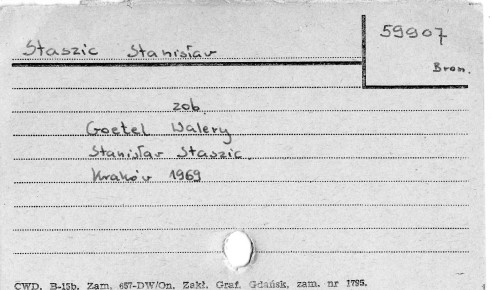 Staszic Stanisław
59907
Bron.
zob.
Goetel Walery
Stanisław Staszic.
Kraków 1969
CWD. B-15b. Zam. 657-DW/On. Zakł. Graf. Gdańsk, zam. nr 1795.